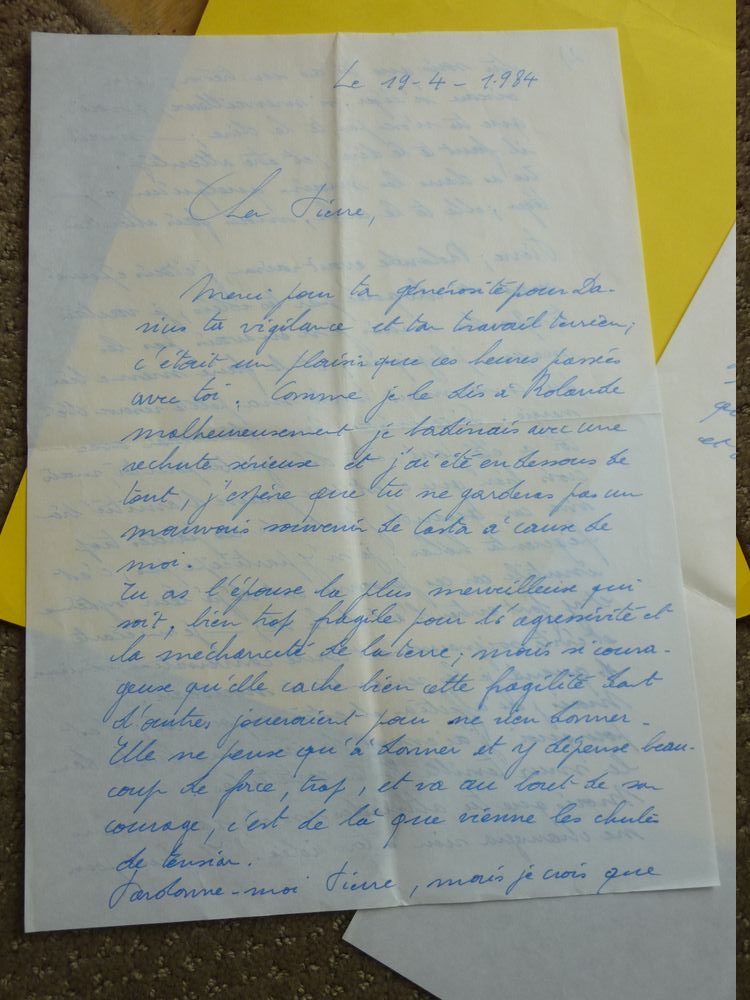 Le 19-4-1984
Cher Pierre,
Merci pour ta générosité pour Da-
rius ta vigilance et ton travail terrien;
c'était un plaisir que ces heures passées
avec toi. Comme je le dis à Rolande
malheureusement je badinais avec une
rechute sérieuse et j'ai été en dessous de
tout, j'espère que tu ne garderas pas un
mauvais souvenir de Casta à cause de
moi.
Tu as l'épouse la plus merveilleuse qui
soit, bien trop fragile pour l'agressivité et
la méchanceté de la terre; mais si coura-
geuse qu'elle cache bien cette fragilité dont
d'autres joueraient pour ne rien donner.
Elle ne pense qu'à donner et y dépense beau-
coup de force, trop, et va au bout de son
courage, c'est de là que vienne les chutes
de tension.
Pardonne-moi Pierre, mais je crois que